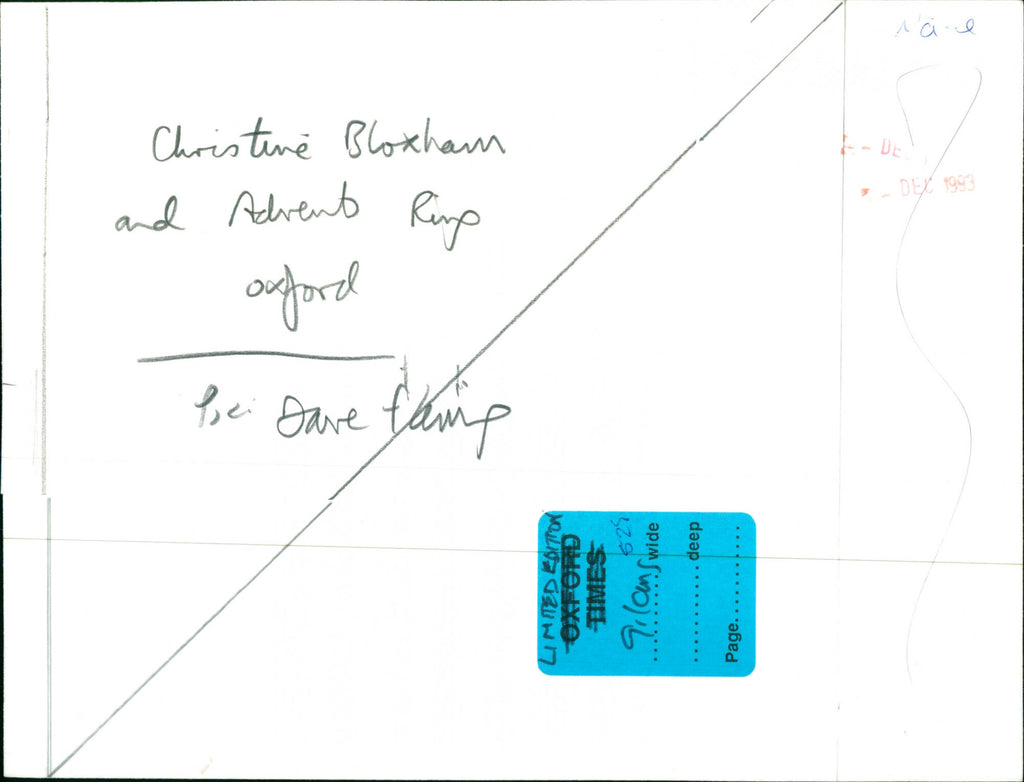 Christine Bloxham
and Advent Ring
Oxford
Dave Fleming
DEC 1993
LIMITED EDITION
OXFORD
TIMES
529
.........wide
.........deep
Page.........